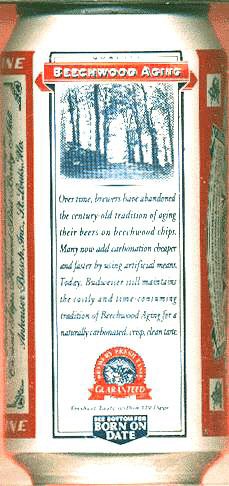 BEECHWOOD AGING
Over time, brewers have abandoned
the century-old tradition of aging
their beers on beechwood chips.
Many now add carbonation cheaper
and faster by using artificial means.
Today, Budweiser still maintains
the costly and time-consuming
tradition of Beechwood Aging for a
naturally carbonated, crisp, clean taste.
BREWERY FRESH TASTE
GUARANTEED
Freshest Taste within 110 Days
SEE BOTTOM FOR
BORN ON
DATE
INE
Anheuser-Busch, Inc., St. Louis, Mo.
INE